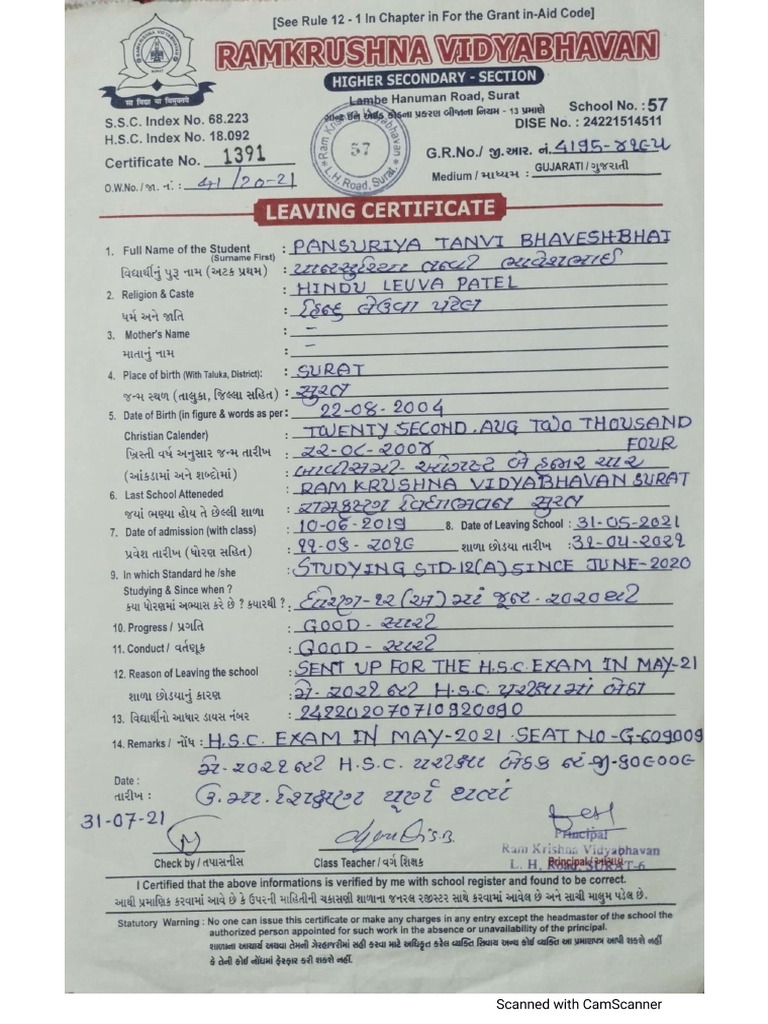 [See Rule 12 - 1 In Chapter in For the Grant in-Aid Code]
RAMKRUSHNA VIDYABHAVAN
HIGHER SECONDARY - SECTION
RAMKRUSHNA VIDYABHAVAN
SURAT
सा विद्या या विमुक्तये
Lambe Hanuman Road, Surat
S.S.C. Index No. 68.223
ગ્રાન્ટ ઈન એઈડ કોડના પ્રકરણ બીજાના નિયમ - 13 પ્રમાણે
School No. : 57
H.S.C. Index No. 18.092
DISE No. : 24221514511
Ram Krishna Vidyabhavan
57
L.H. Road, Surat.
Certificate No. 1391
G.R.No./ જી.આર. નં. 4195-૪૧૯૫
O.W.No./જા. નં : 41/20-21
Medium / માધ્યમ : GUJARATI / ગુજરાતી
LEAVING CERTIFICATE
1. Full Name of the Student (Surname First) : PANSURIYA TANVI BHAVESHBHAI
વિદ્યાર્થીનું પુરૂ નામ (અટક પ્રથમ) : પાનસુરિયા તન્વી ભાવેશભાઈ
2. Religion & Caste : HINDU LEUVA PATEL
ધર્મ અને જાતિ : હિન્દુ લેઉવા પટેલ
3. Mother's Name : –
માતાનું નામ : –
4. Place of birth (With Taluka, District) : SURAT
જન્મ સ્થળ (તાલુકા, જિલ્લા સહિત) : સુરત
5. Date of Birth (in figure & words as per : 22-08-2004
Christian Calender) : TWENTY SECOND. AUG TWO THOUSAND
ખ્રિસ્તી વર્ષ અનુસાર જન્મ તારીખ : ૨૨-૦૮-૨૦૦૪ FOUR
(આંકડામાં અને શબ્દોમાં) : બાવીસમી- ઓગસ્ટ બે હજાર ચાર
6. Last School Atteneded : RAM KRUSHNA VIDYABHAVAN SURAT
જયાં ભણ્યા હોય તે છેલ્લી શાળા : રામકૃષ્ણ વિદ્યાભવન સુરત
7. Date of admission (with class) : 10-06-2019 8. Date of Leaving School : 31-05-2021
પ્રવેશ તારીખ (ધોરણ સહિત) : ૧૧-૦૬-૨૦૧૯ શાળા છોડયા તારીખ : ૩૧-૦૫-૨૦૨૧
9. In which Standard he /she : STUDYING STD-12(A) SINCE JUNE-2020
Studying & Since when ?
ક્યા ધોરણમાં અભ્યાસ કરે છે ? ક્યારથી ? : ધોરણ-૧૨ (અ) માં જૂન-૨૦૨૦થી
10. Progress / પ્રગતિ : GOOD - સારી
11. Conduct / વર્તણૂક : GOOD - સારી
12. Reason of Leaving the school : SENT UP FOR THE H.S.C. EXAM IN MAY-21
શાળા છોડયાનું કારણ : મે-૨૦૨૧ની H.S.C. પરીક્ષામાં બેઠા
13. વિદ્યાર્થીનો આધાર ડાયસ નંબર : 242202070710920090
14. Remarks / નોંધ : H.S.C. EXAM IN MAY-2021 SEAT NO-G-609009
મે-૨૦૨૧ની H.S.C. પરીક્ષા બેઠક નં.જી-૬૦૯૦૦૯
Date :
તારીખ : ઉ.મા. શિક્ષણ પૂર્ણ થતાં
31-07-21
Principal
Ram Krishna Vidyabhavan
L. H. Road, SURAT-6
Check by / તપાસનીસ
Class Teacher / વર્ગ શિક્ષક
I Certified that the above informations is verified by me with school register and found to be correct.
આથી પ્રમાણિક કરવામાં આવે છે કે ઉપરની માહિતીની ચકાસણી શાળાના જનરલ રજીસ્ટર સાથે કરવામાં આવેલ છે અને સાચી માલુમ પડેલ છે.
Statutory Warning : No one can issue this certificate or make any charges in any entry except the headmaster of the school the
authorized person appointed for such work in the absence or unavailability of the principal.
શાળાના આચાર્ય અથવા તેમની ગેરહાજરીમાં સહી કરવા માટે અધિકૃત કરેલ વ્યક્તિ સિવાય અન્ય કોઈ વ્યક્તિ આ પ્રમાણપત્ર આપી શકશે નહીં
કે તેની કોઈ નોંધમાં ફેરફાર કરી શકશે નહીં.
Scanned with CamScanner